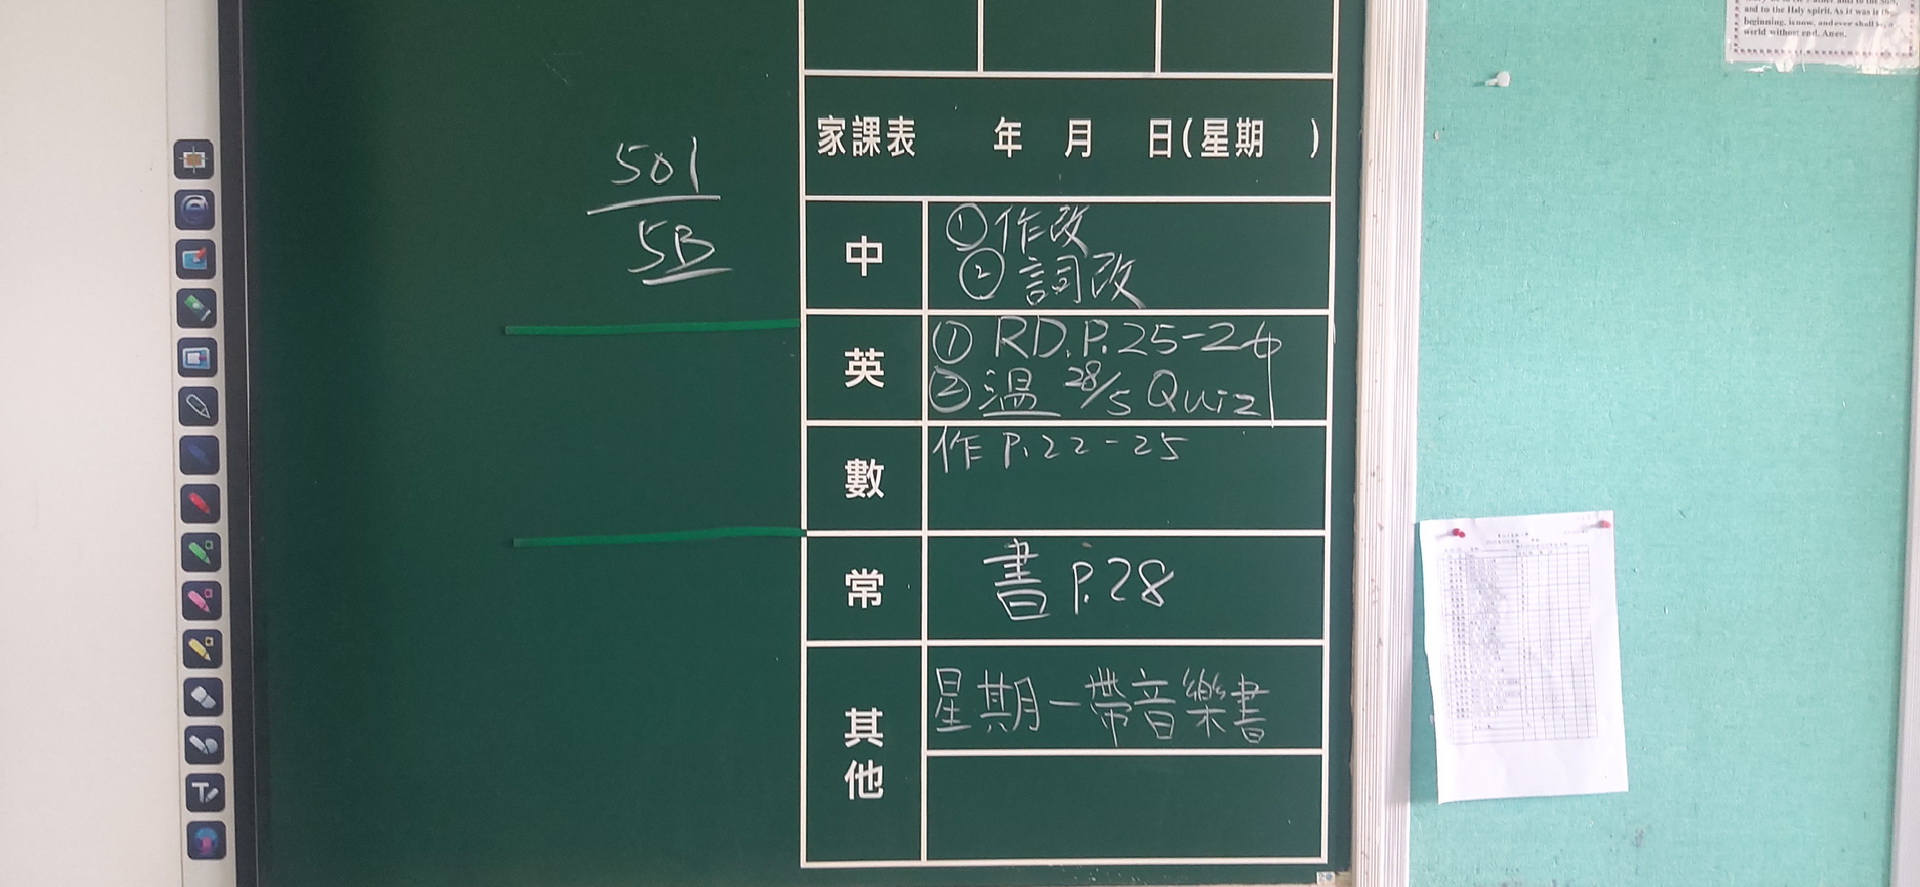 and to the Holy spirit. As it was in the
beginning, is now, and ever shall be, a
world without end. Amen.
家課表 年 月 日(星期 )
501
5B
中
① 作改
② 詞改
英
① RD.P.25-26
② 温 28/5 Quiz
數
作 P.22-25
常
書 P.28
其他
星期一帶音樂書